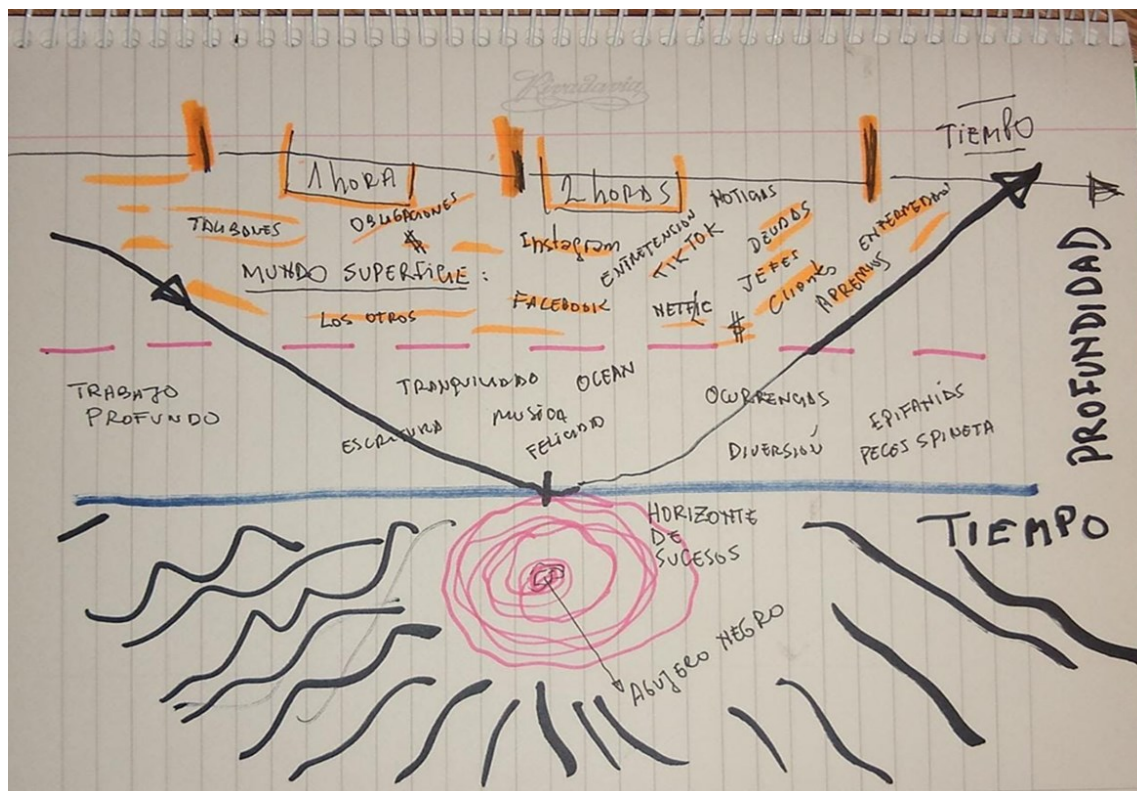 Rivadavia
TIEMPO
1 hORA
2 hORAS
NOTICIAS
TIBURONES
OBLIGACIONES
$
Instagram
ENTRETENCIÓN
TIKTOK
DEUDAS
ENFERMEDAD
MUNDO SUPERFICIE:
JEFES
LOS OTROS
FACEBOOK
NETFIC
$
Clientes
APREMIOS
PROFUNDIDAD
TRABAJO
PROFUNDO
TRANQUILIDAD
OCEAN
ESCRITURA
MUSICA
FELICIDAD
OCURRENCIAS
DIVERSIÓN
EPIFANÍAS
PECES SPINETA
HORIZONTE
DE
SUCESOS
TIEMPO
AGUJERO NEGRO